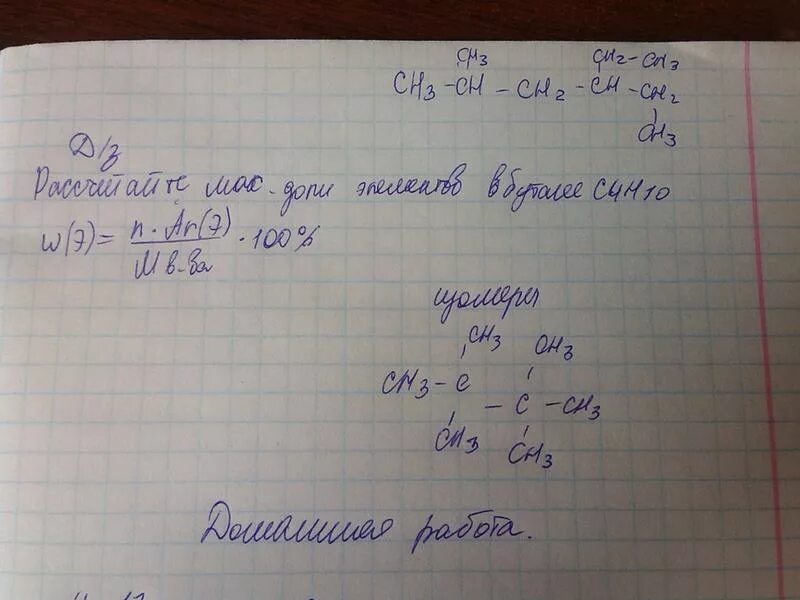 CH3 CH2-CH3
CH3 -CH - CH2 - CH - CH2
CH3
Д/з
Рассчитайте мас. доли элементов в бутане C4H10
W(Э)= n · Ar(Э) / M в-ва · 100%
изомеры
CH3 CH3
CH3 - C
- C - CH3
CH3 CH3
Домашняя работа.